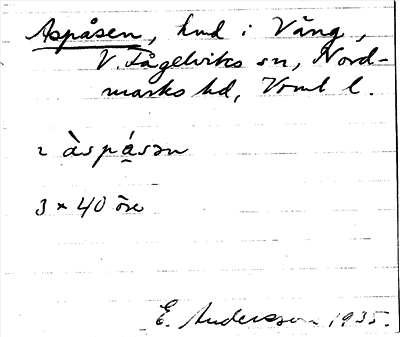 Aspåsen, hmd i Vång,
V. Fågelviks sn, Nord-
marks hd, Vrml l.
2 àspásən
3 × 40 öre
E. Andersson 1935.